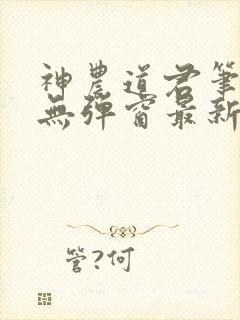 神農道君筆
無彈窗最新
管?何